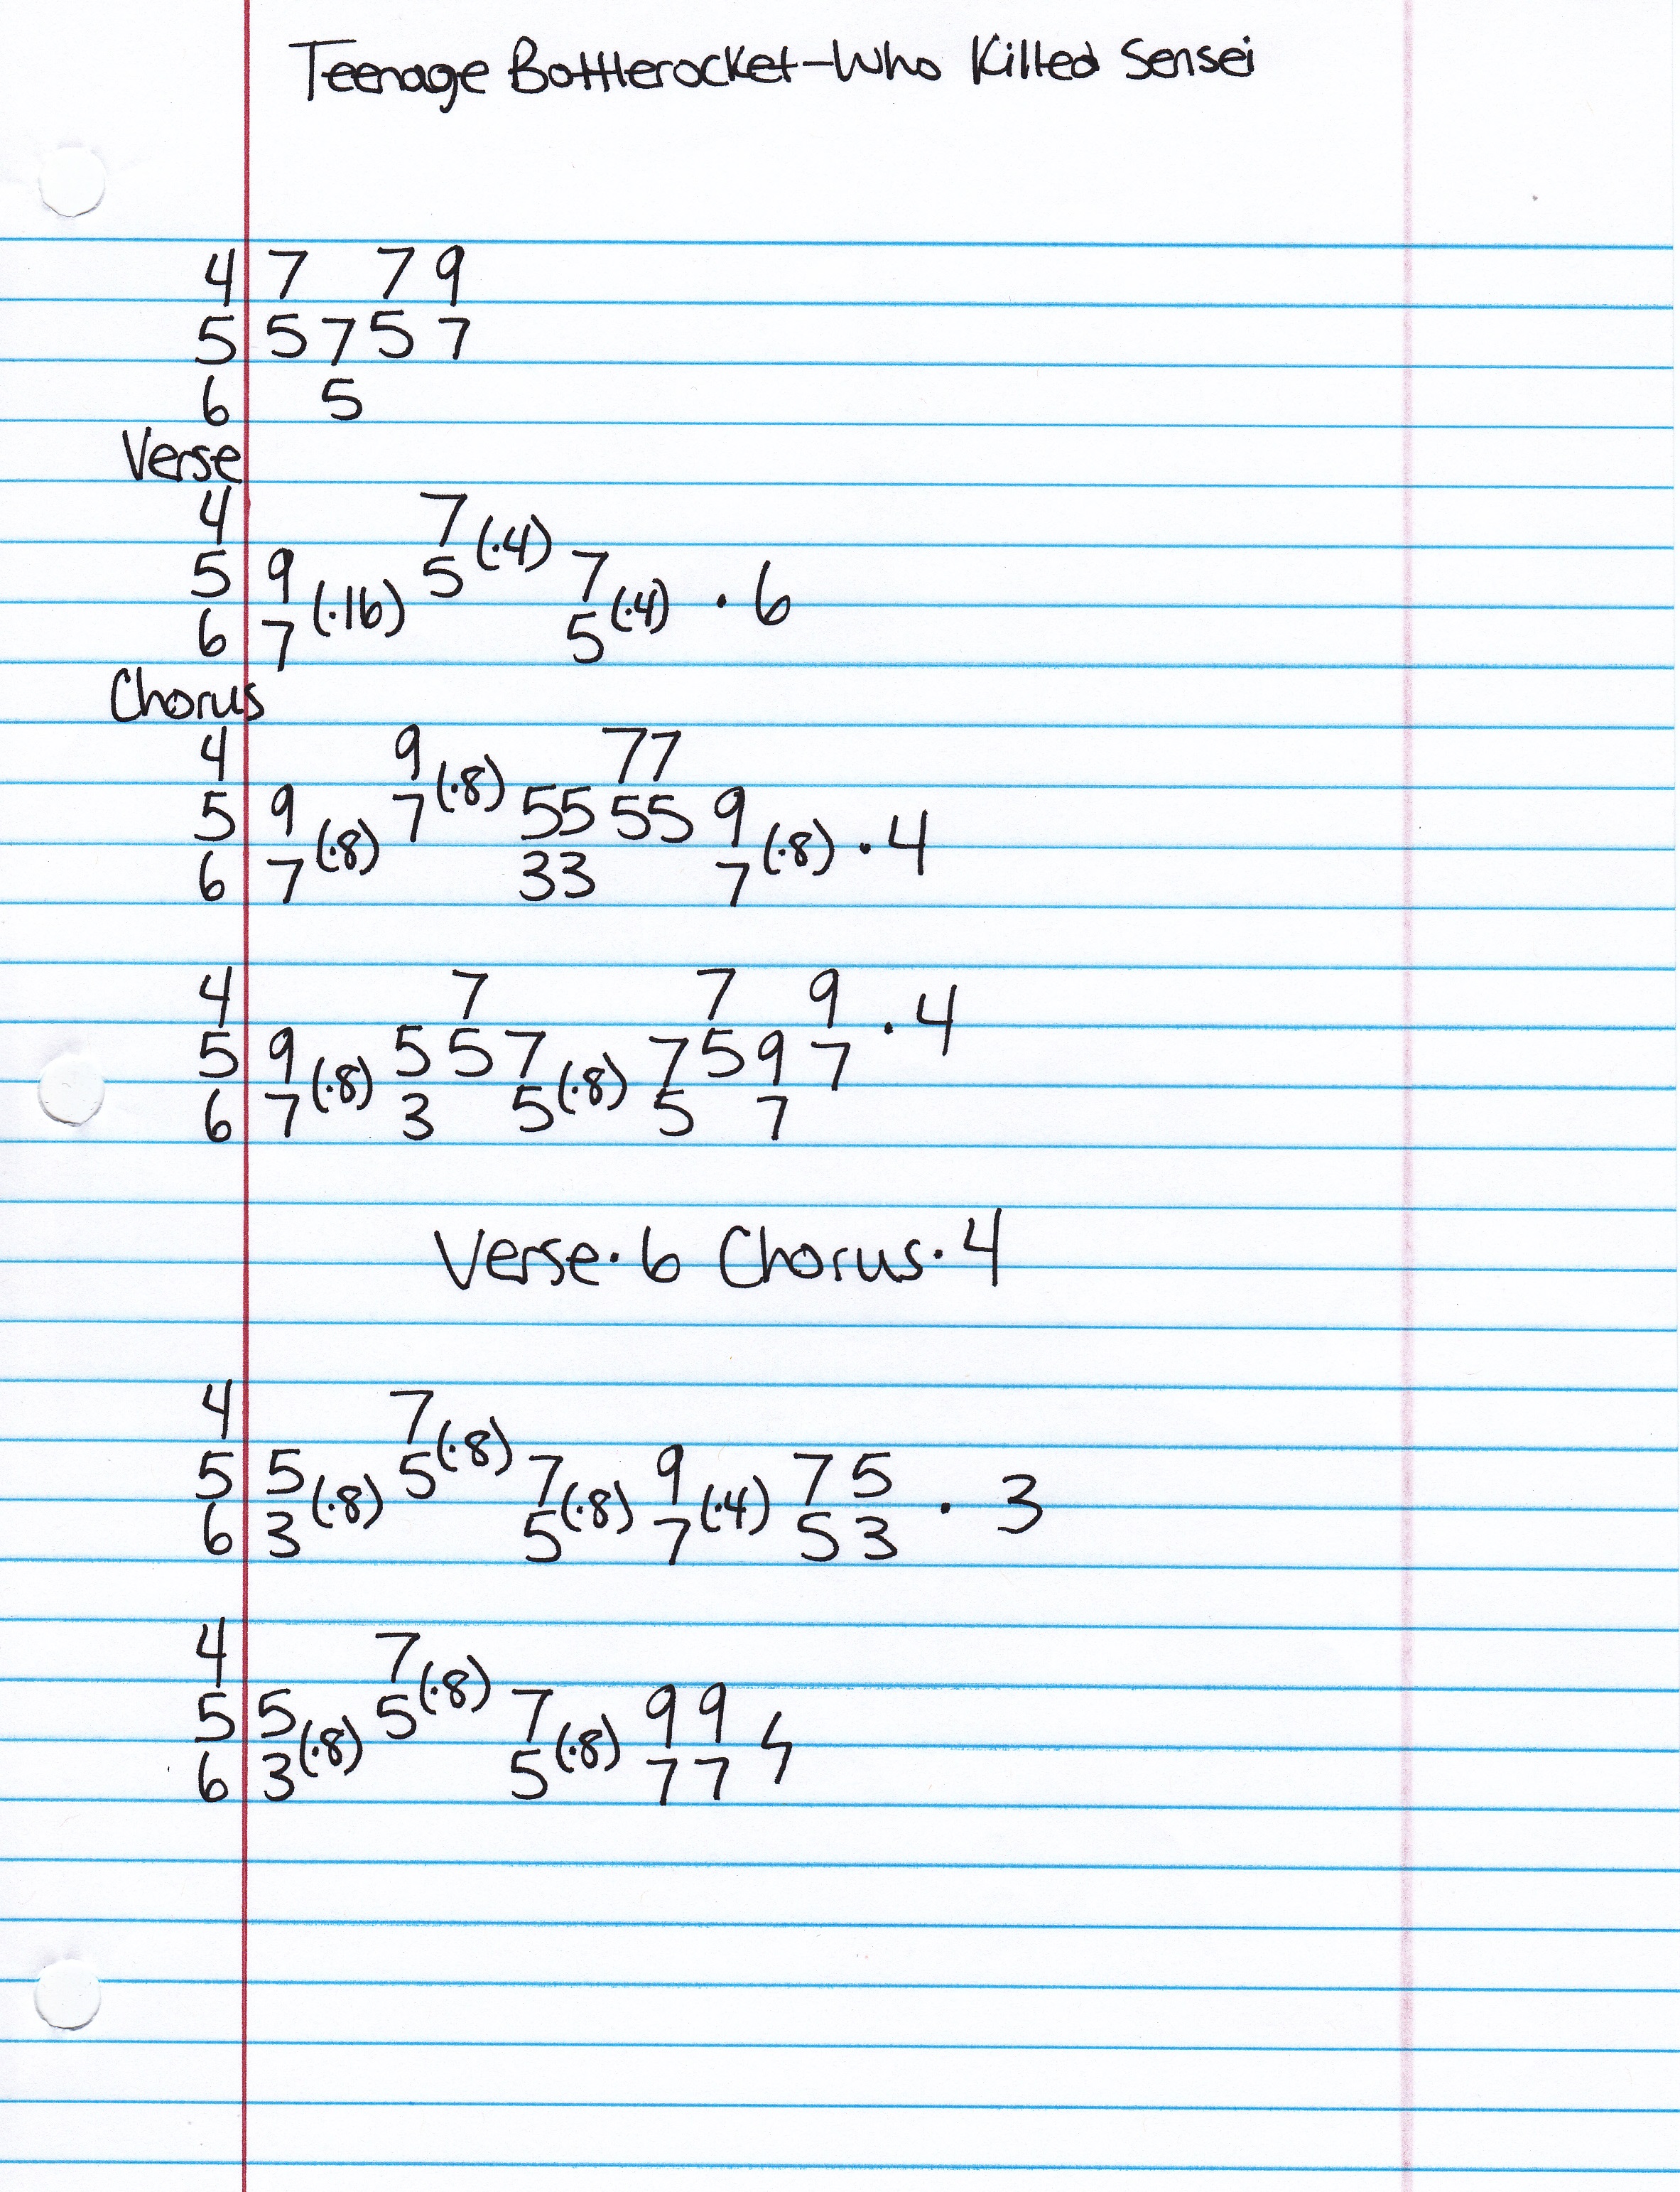 Teenage Bottlerocket-Who Killed Sensei
4 7 7 9
5 5 7 5 7
6 5
Verse
4 7 (·4)
5 9 (·16) 5 7 (·4) · 6
6 7 5
Chorus
4 9 (·8) 77
5 9 (·8) 7 55 55 9 (·8) · 4
6 7 33 7
4 7 7 9 · 4
5 9 (·8) 5 5 7 (·8) 7 5 9 7
6 7 3 5 5 7
Verse·6 Chorus·4
4 7 (·8)
5 5 (·8) 5 7 (·8) 9 (·4) 7 5 · 3
6 3 5 7 5 3
4 7 (·8)
5 5 (·8) 5 7 (·8) 9 9
6 3 5 7 7